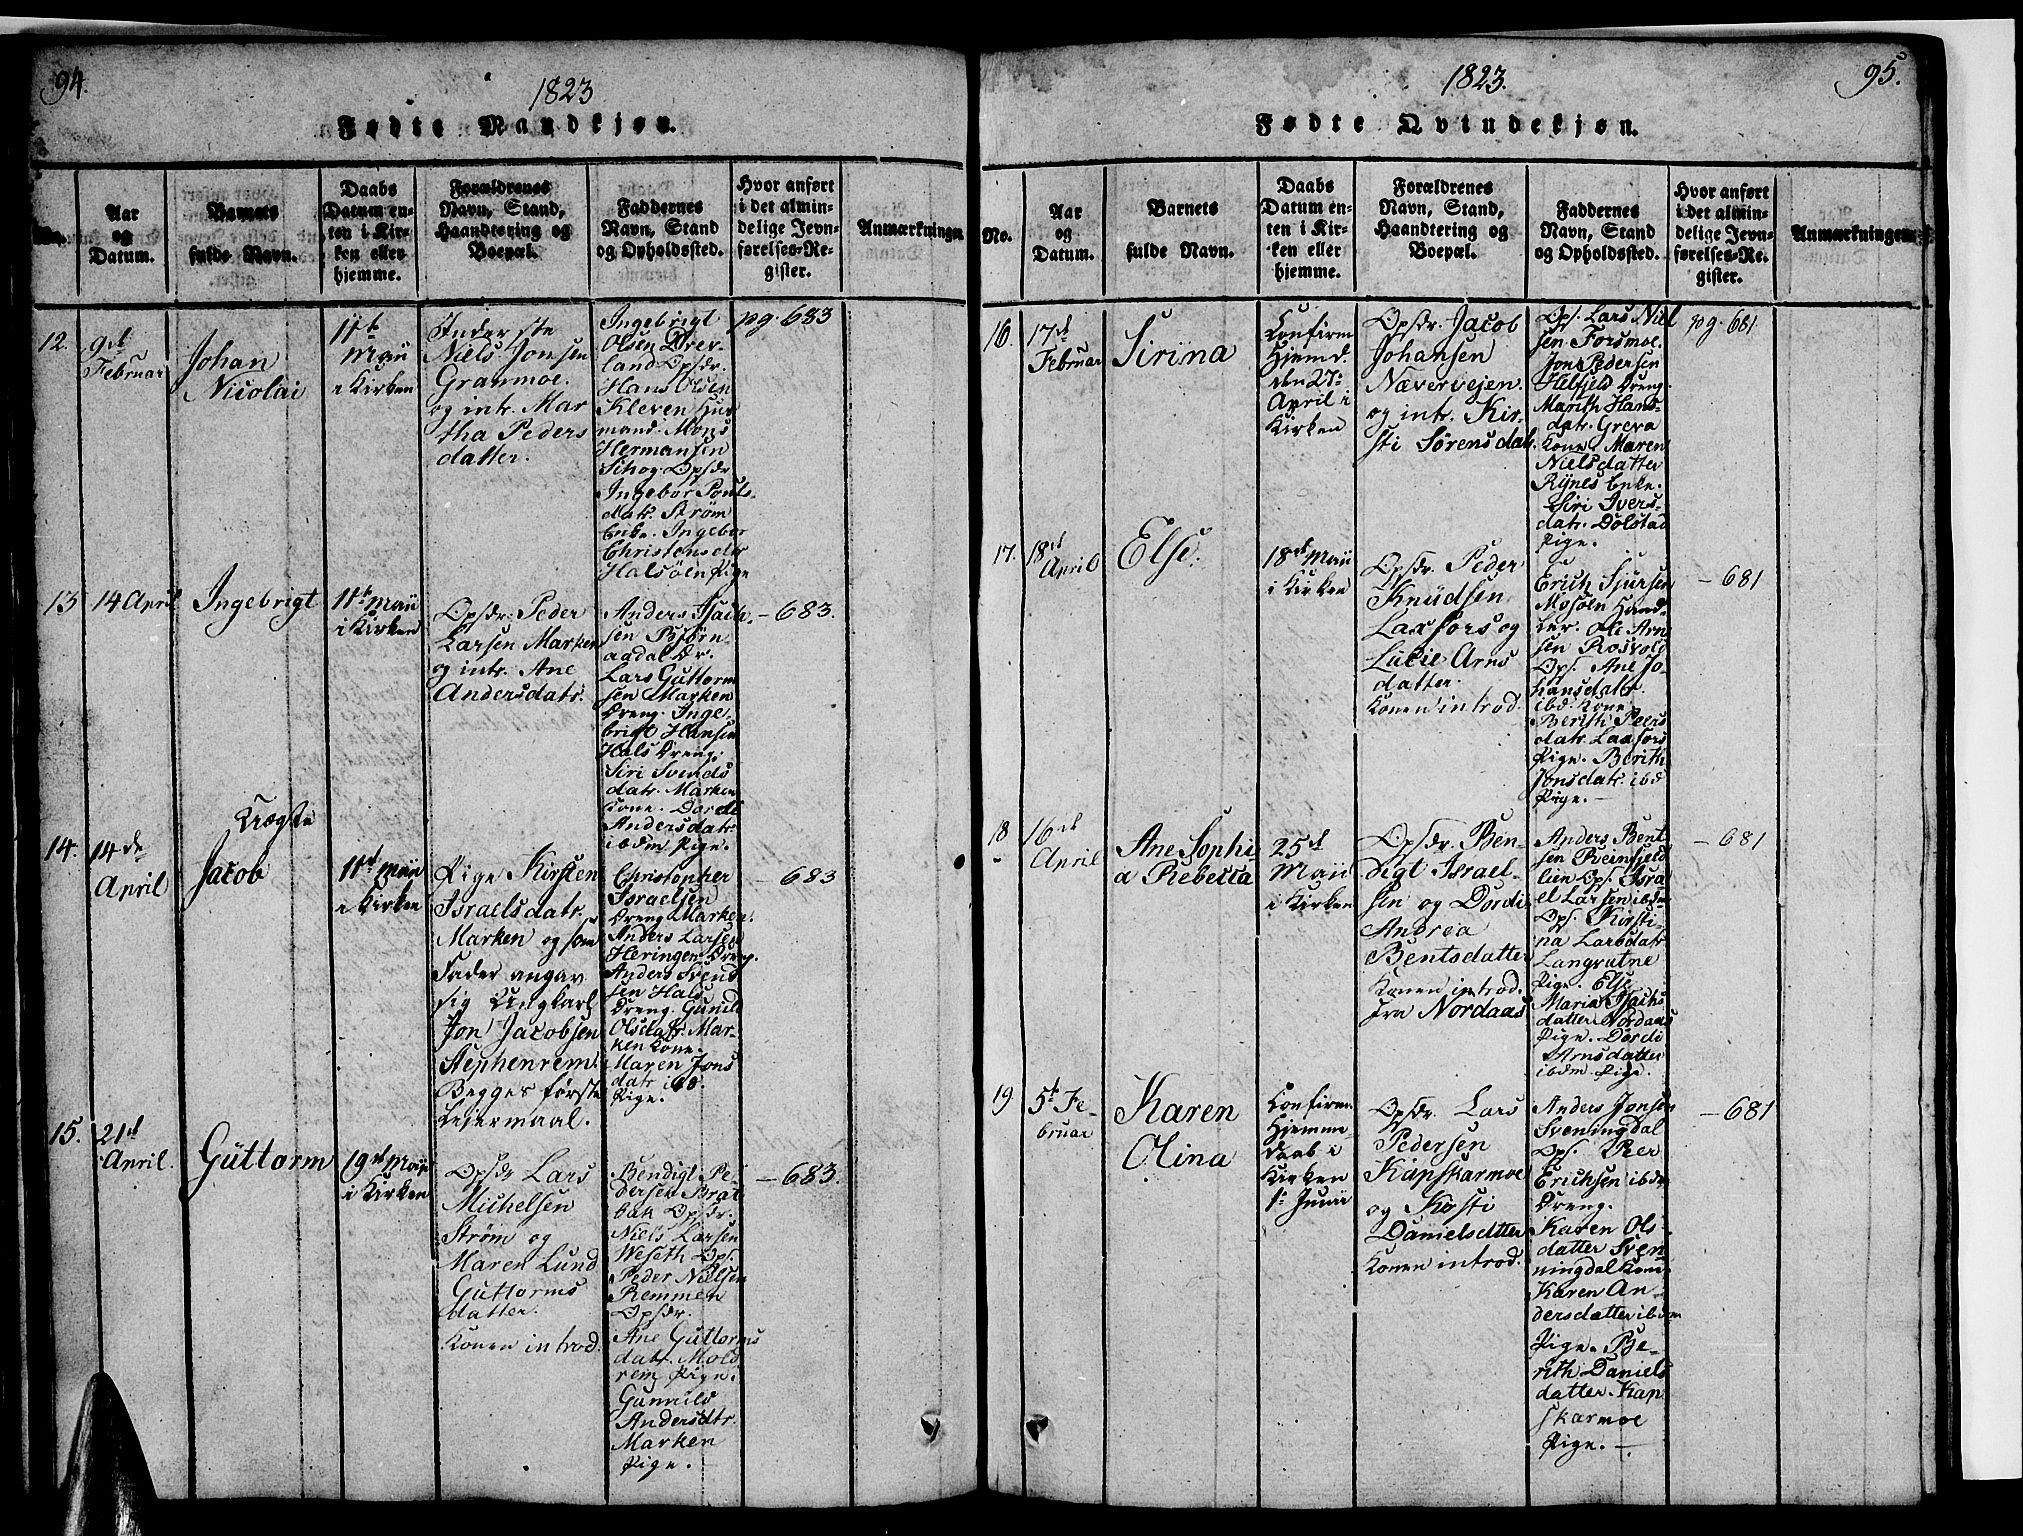 94.
1823
Fødte Mandkjøn.
No.
Aar
og
Datum.
Barnets
fulde Navn.
Daabs
Datum en-
ten i Kir-
ken eller
hjemme.
Forældrenes
Navn, Stand,
Haandtering og
Boepæl.
Faddernes
Navn, Stand
og Opholdssted.
Hvor anført
i det almin-
delige Jevn-
førelses-Re-
gister.
Anmærkninger
12.
9de
Februar
Johan
Nicolai
11te
Maii
i Kirken
Inderste
Niels Jonsen
Granmoe.
og intr. Mar
tha Peders
datter.
Ingebrigt
Olsen Drev-
land Opsdr.
Hans Olsen
Kleven Huus
mand. Mons
Hermansen
Sihog. Opsdr.
Ingebor Pouls-
datr. Strøm
Enke. Ingebor
Christensdtr
Halsøen Pige
pg. 683
13
14 April
Ingebrigt
11te Maii
i Kirken
Opsdr. Peder
Larsen Marken
og intr. Ane
Andersdatr.
Anders Isach-
sen Bjørn
aadal Dr.
Lars Guttorm
sen Marken
Dreng. Inge-
brigt Hansen
Hals Dreng.
Siri Svends
datr. Marken
Kone. Dordi
Andersdatr
ibdm Pige.
- 683.
14.
14de
April
Uægte
Jacob
11te Maii
i Kirken
Pige Kirsten
Israelsdatr.
Marken og som
Fader angav
sig Ungkarl
Jon Jacobsen
Stephenrem.
Begges første
Leiermaal.
Christopher
Israelsen
Dreng Marken.
Anders Larsen
Heringen Dreng.
Anders Svend
sen Hals
Dreng. Gunild
Olsdatr. Mar-
ken Kone.
Maren Jons
datr ibd.
Pige.
- 683
15.
21de
April.
Guttorm
19de Maii
i Kirken
Opsdr Lars
Michelsen
Strøm og
Maren Lund
Guttorms
datter.
Konen introd.
Bendigt Pe-
dersen Brat
bak Opsdr.
Niels Larsen
Weseth Ops.
Peder Nielsen
Remmen
Opsdr.
Ane Guttorms
datr. Mold
rem Pige.
Gunnild
Andersdtr.
Marken
Pige.
- 683.
95.
1823.
Fødte Qvindekjøn.
No.
Aar
og
Datum.
Barnets
fulde Navn.
Daabs
Datum en-
ten i Kir-
ken eller
hjemme.
Forældrenes
Navn, Stand,
Haandtering og
Boepæl.
Faddernes
Navn, Stand
og Opholdssted.
Hvor anført
i det almin-
delige Jevn-
førelses-Re-
gister.
Anmærkninger
16.
17de
Februar
Sirina
Confirm
Hjemd.
den 27de
April i
Kirken
Opsdr. Jacob
Johansen
Nævervejen
og intr. Kir-
sti Sørensdatr.
Ops. Lars Niel
sen Forsmoe.
Jon Pedersen
Helfjeld Dreng.
Marith Hans-
datr. Greva
Kone Maren
Nielsdatter
Rynes Enke.
Siri Ivers-
datr. Dolstad
Pige.
pg. 681
17.
18de
April
Else.
18de Maii
i Kirken
Opsdr. Peder
Knudsen
Laxfors og
Lucie Arns
datter.
Konen introd.
Erich Sjursen
Mosøen Hand-
ler. Ole Arn
sen Rosvold
Ops. Ane Jo-
hansdatr.
ibd. Kone
Berith Peers
datr. Laxfors
Pige. Berith
Jonsdatr. ibd
Pige.
- 681
18
16de
April
Ane Sophi
a Rebecca
25de
Maii
i Kirken
Opsdr. Ben-
digt Israel-
sen og Dordi
Andrea
Bentsdatter
Konen introd.
fra Nordaas
Anders Bent
sen Reinfjeld
lien Ops. Isra
el Larsen ibdm
Ops. Kirsti-
na Larsdatr
Langvatne
Pige. Else
Maria Isachs
datter Nordaas
Pige. Dordi
Arnsdatter
ibdm. Pige.
- 681
19
5te Fe-
bruar
Karen
Olina
Confirm.
Hjemme-
daab i
Kirken
1te Junii
Opsdr. Lars
Pedersen
Kapskarmoe
og Kisti
Danielsdatter
Konen introd.
Anders Jonsen
Sveningdal
Ops. Peer
Erichsen ibdm
Dreng.
Karen Ols-
datter Sven
ningdal Kone
Karen An-
dersdatter ibdm
Pige. Be-
rith Daniels
datter. Kap
skarmoe
Pige.
- 681